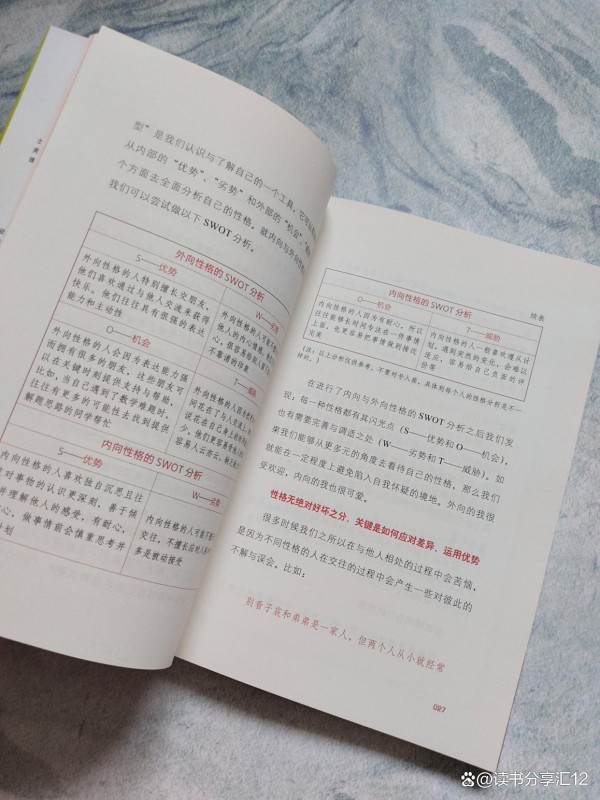 型”是我们认识与了解自己的一个工具，它可以
从内部的“优势”、“劣势”和外部的“机会”、
个方面去全面分析自己的性格。就内向与外向
我们可以尝试做以下SWOT分析。
外向性格的SWOT分析
S——优势
外向性格的人特别擅长交朋友，
他们喜欢通过与他人交流来获得
快乐。他们往往具有很强的表达
能力和主动性
W——劣势
外向性格的人可能
他人的内心情绪，
不靠谱的印象
O——机会
外向性格的人会因为表达能力强
而拥有很多的朋友，这些朋友可
以在关键时刻提供支持与帮助，
比如，当自己遇到了数学难题时，
往往有更多的可能性去找到提供
解题思路的同学帮忙
T——威胁
外向性格的人
间花在了与人交流上，
说花在自己身上的
少。他们更容易
容易人云亦云，
内向性格的SWOT分析
S——优势
内向性格的人喜欢独自沉思且往
往对事物的认识更深刻，善于倾
听并理解他人的感受，有耐心，
心，做事情前会慎重思考并
计划
W——劣势
内向性格的人可能
交往，不擅长应对
多是被动接受
续表
内向性格的SWOT分析
O——机会
内向性格的人因为有耐心，所以
往往能够长时间专注在一件事情
上面，也更容易把事情做到精益
求精
T——威胁
内向性格的人一般喜欢遵从计
划，遇到突然的变化，会难以
适应，容易给自己负面的评
价
（注：以上分析仅供参考，不要对号入座，具体到每个人的性格分析是不一
样的。）
在进行了内向与外向性格的SWOT分析之后我们发
现：每一种性格都有其闪光点（S——优势和O——机会），
也有需要完善与调适之处（W——劣势和T——威胁）。如
果我们能够从更多元的角度去看待自己的性格，那么我们
就能在一定程度上避免陷入自我怀疑的境地。外向的我很
受欢迎，内向的我也很可爱。
性格无绝对好坏之分，关键是如何应对差异、运用优势
很多时候我们之所以在与他人相处的过程中会苦恼，
是因为不同性格的人在交往的过程中会产生一些对彼此的
不解与误会。比如：
别看子宸和弟弟是一家人，但两个人从小就经常
087
@读书分享汇12